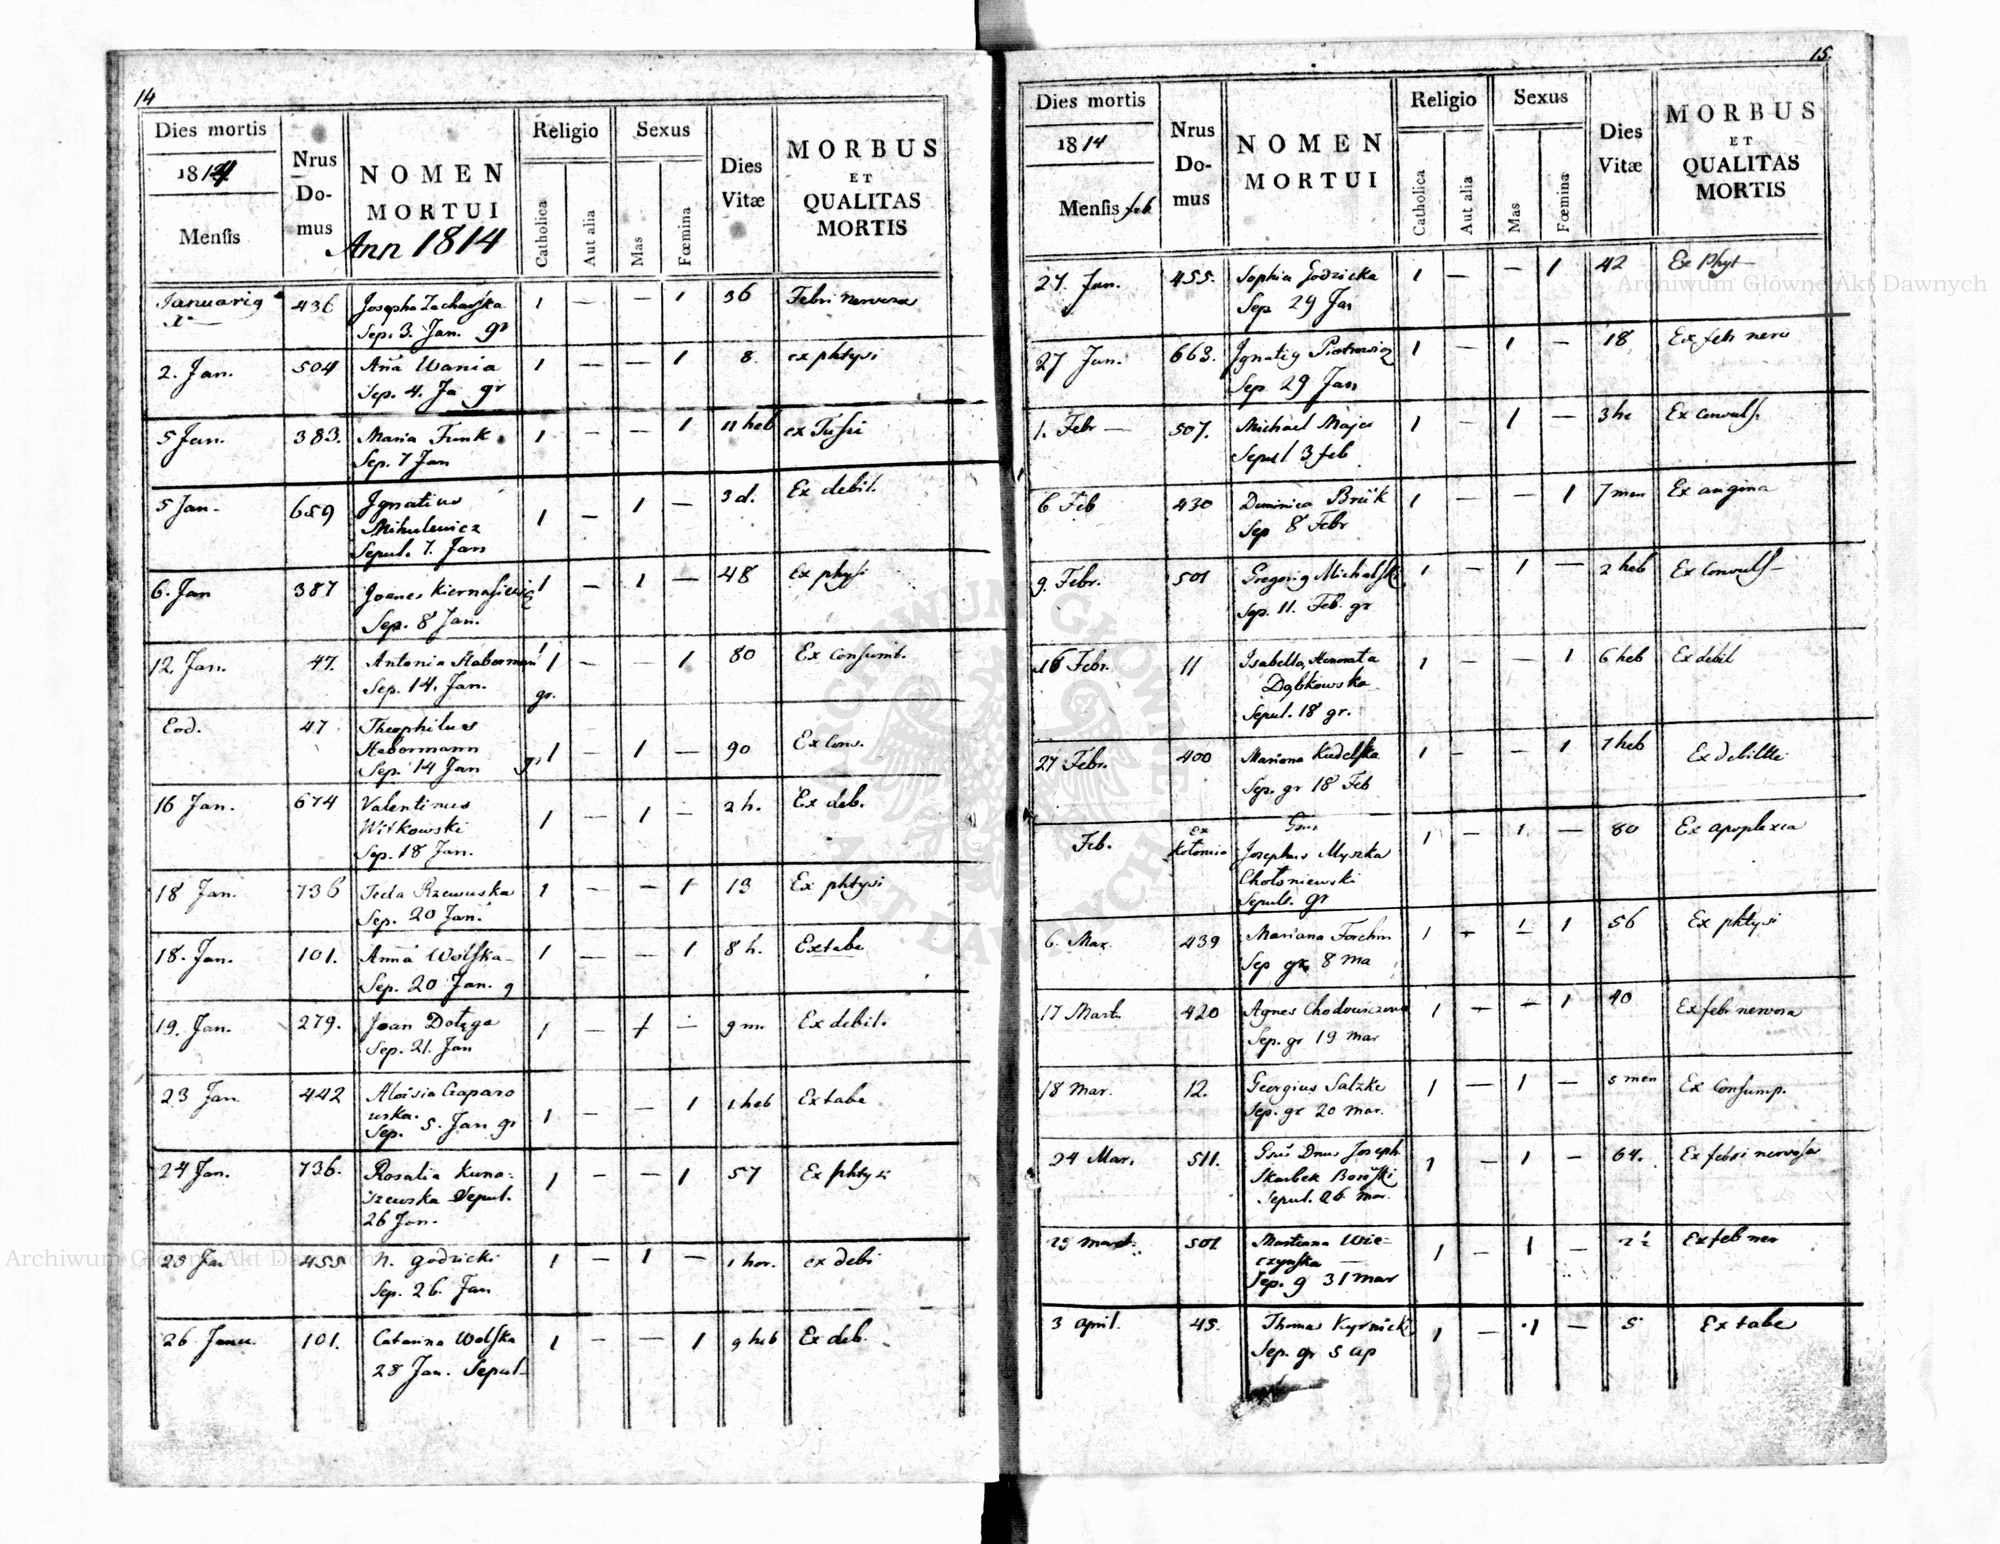 14
Dies mortis
1814
Mensis
Nrus
Do-
mus
NOMEN
MORTUI
Ann 1814
Religio
Catholica
Aut alia
Sexus
Mas
Fœmina
Dies
Vitæ
MORBUS
ET
QUALITAS
MORTIS
436 Josepha 1 — — 1 36 Febri nervosa
Sep. 3. Jan. gr
2. Jan. 504 Aña Wania 1 — — 1 8 ex phtysi
Sep. 4. Ja gr
5 Jan. 383. Maria Funk 1 — — 1 11 heb ex Tussi
Sep. 7 Jan
5 Jan. 659 Ignatius 1 — 1 — 3 d. Ex debil.
Mikulewicz
Sepul. 7. Jan
6. Jan 387 Joanes 1 — 1 — 48 Ex physi
Sep. 8 Jan.
12. Jan. 47. Antonia Habermann 1 — — 1 80 Ex Consumt.
Sep. 14. Jan. gr.
Eod. 47 Theophilus 1 — 1 — 90 Ex Cons.
Habermann
Sep. 14 Jan gr
16 Jan. 674 Valentinus 1 — 1 — 2 h. Ex deb.
Witkowski
Sep. 18 Jan.
18 Jan. 736 Tecla Rzewuska 1 — — 1 13 Ex phtysi
Sep. 20 Jan.
18. Jan. 101. Anna Wolska 1 — — 1 8 h. Ex tabe
Sep. 20 Jan. g
19. Jan. 279. Joan Dołęga 1 — 1 — 9 m. Ex debil.
Sep. 21. Jan
23 Jan 442 Aloisia Gaparo 1 — — 1 1 heb Ex tabe
wska.
Sep. 5. Jan gr
24 Jan. 736. Rosalia Kuna- 1 — — 1 57 Ex phtysi
szewska Sepul.
26 Jan.
25 Jan 455 N. godzicki 1 — 1 — 1 hor. ex debi
Sep. 26. Jan
26 Janu. 101. Catarina Wolska 1 — — 1 9 heb Ex deb.
28 Jan. Sepul
15.
Dies mortis
1814
Mensis feb
Nrus
Do-
mus
NOMEN
MORTUI
Religio
Catholica
Aut alia
Sexus
Mas
Fœmina
Dies
Vitæ
MORBUS
ET
QUALITAS
MORTIS
27. Jan. 455. Sophia Godzicka 1 — — 1 42 Ex Phyt
Sep 29 Jan
27 Jan. 663. Ignatig Piotrowicz 1 — 1 — 18 Ex feb nerv
Sep 29 Jan
1. Febr — 507. Michael Majer 1 — 1 — 3 he Ex convuls.
Sepul 3 feb
6 Feb 430 Dominica Brük 1 — — 1 7 men Ex angina
Sep 8 Febr
9. Febr. 501 Gregorig Michalski 1 — 1 — 2 heb Ex Convuls
Sep. 11. Feb. gr
16 Febr. 11 Isabella, Honorata 1 — — 1 6 heb Ex debil
Dąbkowska
Sepul. 18 gr.
27 Febr. 400 Mariana Kudelska 1 — — 1 7 heb Ex debilite
Sep. gr 18 Feb
Feb. ex Kołomia Gsus 1 — 1 — 80 Ex apoplexia
Josephus Myszka
Chołoniewski
Sepult. gr
6. Mar. 439 Mariana Forchin 1 — 1 1 56 Ex phtysi
Sep gr 8 ma
17 Mart. 420 Agnes 1 — — 1 40 Ex febr nervosa
Sep. gr 19 mar
18 Mar. 12. Georgius Salzke 1 — 1 — 5 men Ex Consump.
Sep. gr 20 mar.
24 Mar. 511. Gsus Dnus Joseph 1 — 1 — 64. Ex febri nervosa
Skarbek Borowski
Sepul. 26 mar.
29 mart. 501 Martiana Wie- 1 — 1 — 2½ Ex feb ner
czynska
Sep. g 31 mar
3 april. 45. Thomas Kyrnicki 1 — 1 — 5 Ex tabe
Sep. gr 5 ap
Archiwum Główne Akt Dawnych
Archiwum Główne Akt Dawnych
ARCHIWUM GŁÓWNE AKT DAWNYCH